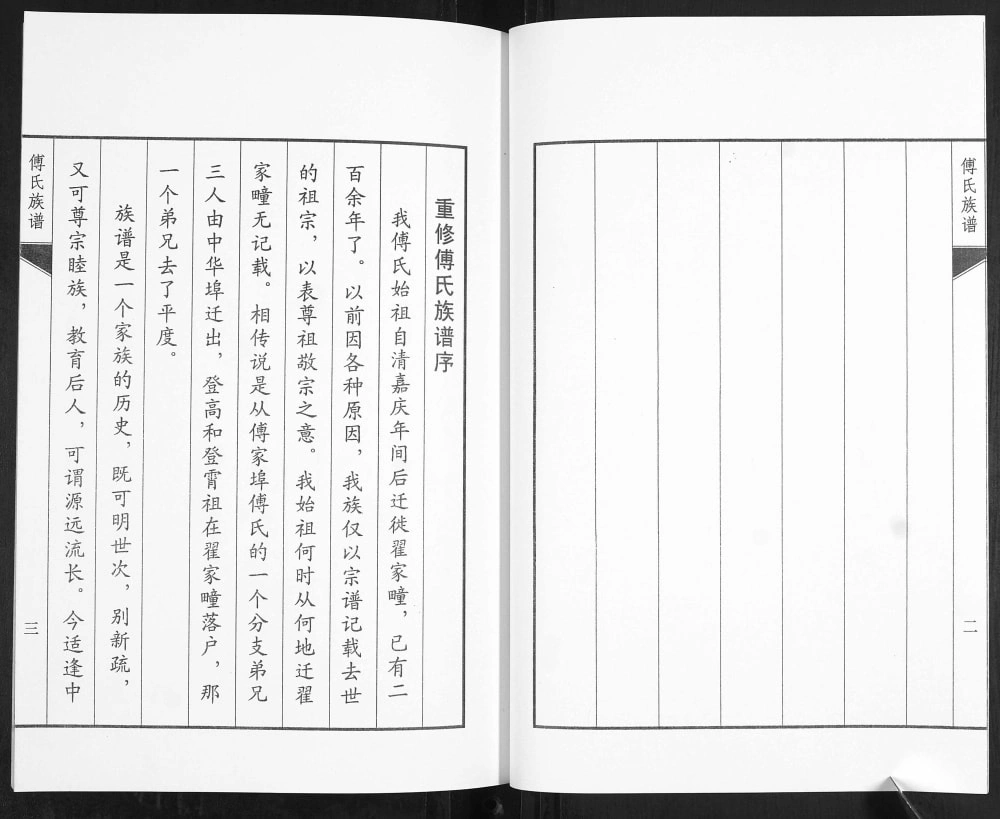 傅氏族谱
二
重修傅氏族谱序
我傅氏始祖自清嘉庆年间后迁徙翟家疃，已有二
百余年了。以前因各种原因，我族仅以宗谱记载去世
的祖宗，以表尊祖敬宗之意。我始祖何时从何地迁翟
家疃无记载。相传说是从傅家埠傅氏的一个分支弟兄
三人由中华埠迁出，登高和登霄祖在翟家疃落户，那
一个弟兄去了平度。
族谱是一个家族的历史，既可明世次，别新疏，
又可尊宗睦族，教育后人，可谓源远流长。今适逢中
傅氏族谱
三